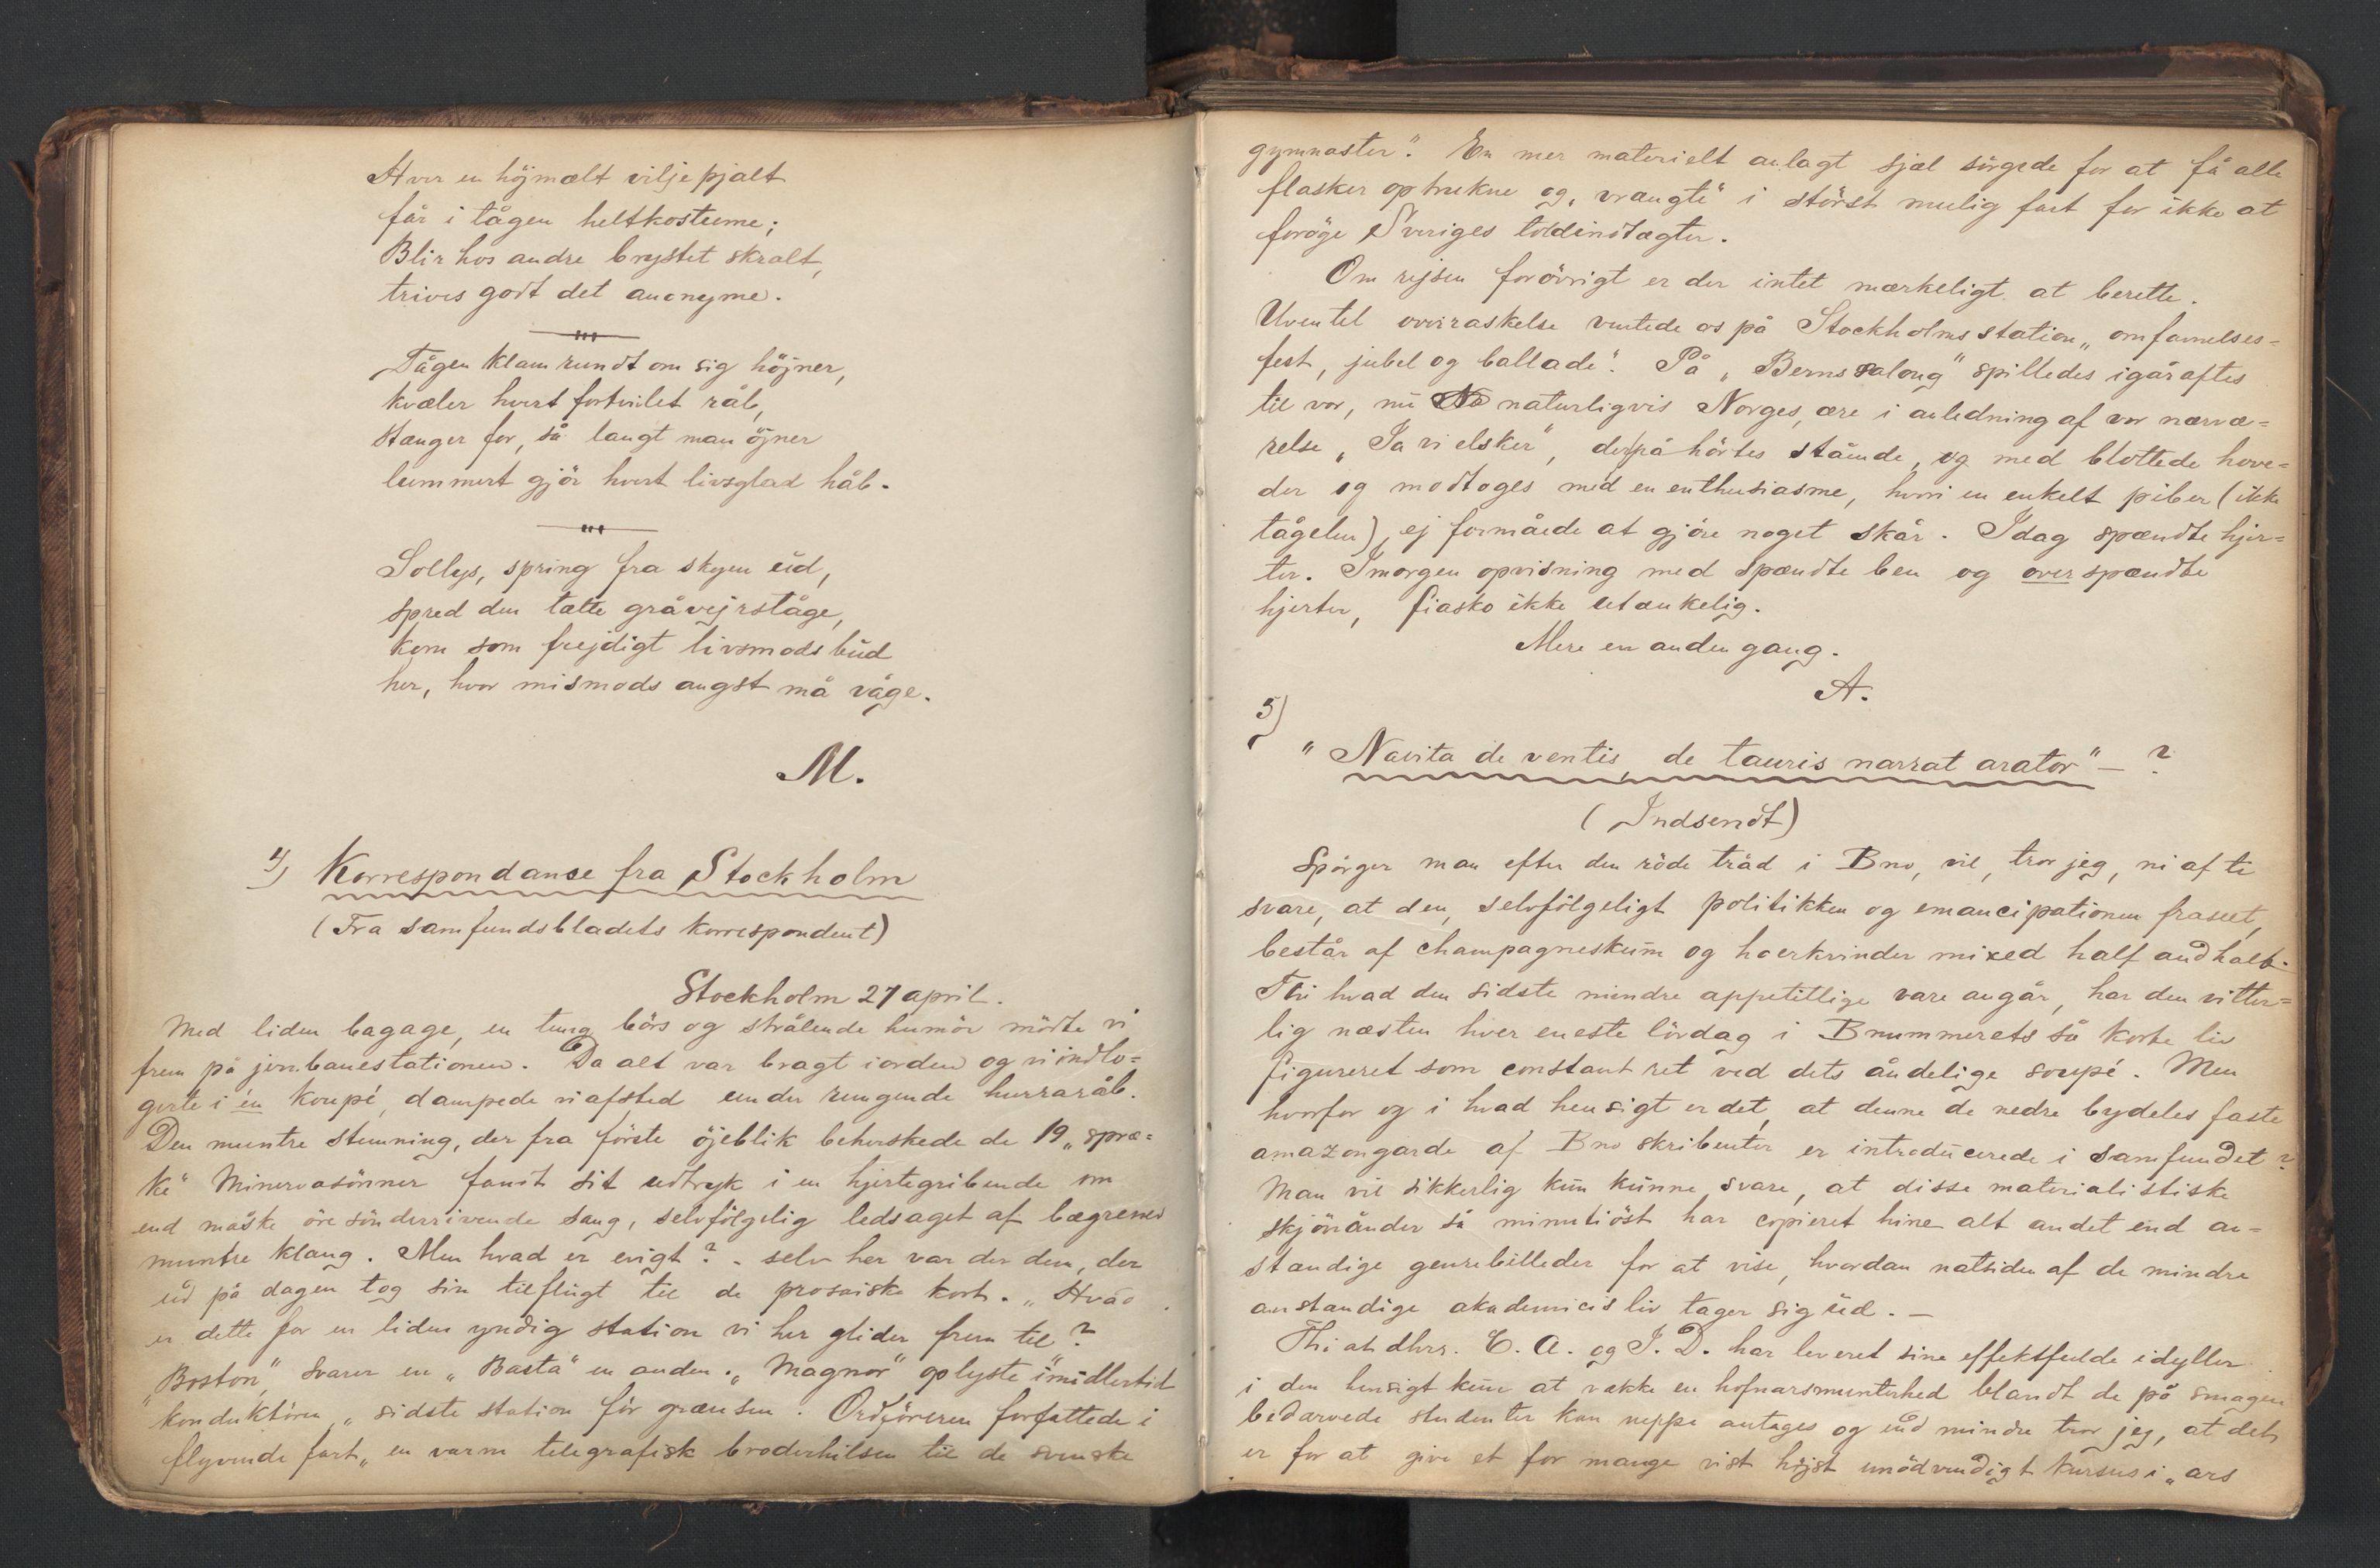 Hver en höjmælt viljepjalt
får i tågen heltkostume;
Blir hos andre brystet skralt,
trives godt det anonyme.
Tågen klam rundt om sig höjner,
kvæler hvert fortvilet råb,
stænger for, så langt man öjner
lummert gjör hvert livsglad håb.
Sollys, spring fra skyen ud,
spred den tætte gråvejrståge,
kom som frejdigt livsmods bud
her, hvor mismods angst må våge.
M.
4) Korrespondanse fra Stockholm
(Fra samfundsbladets korrespondent)
Stockholm 27 april.
Med liden bagage, en tung börs og strålende humör mödte vi
frem på jernbanestationen. Da alt var bragt i orden og vi indlo=
gerte i én koupé, dampede vi afsted under rungende hurraråb.
Den muntre stemning, der fra förste öjeblik beherskede de 19 „spræ=
ke" Minervasönner fandt sit udtryk i en hjertegribende om
end måske öresönderrivende sang, selvfölgelig ledsaget af bægrenes
muntre klang. Men hvad er evigt? - selv her var der dem, der
ud på dagen tog sin tilflugt til de prosaiske kort. „Hvad
er dette for en liden yndig station vi her glider frem til?
„Boston", svarer en „Basta" en anden. „Magnor" oplyste imidlertid
konduktören, „sidste station för grænsen". Ordföreren forfattede i
flyvende fart „en varm telegrafisk broderhilsen til de svenske
gymnaster". En mer materielt anlagt sjæl sörgede for at få alle
flasker optrukne og „vrængte" i störst mulig fart for ikke at
foröge Sveriges toldindtægter.
Om rejsen forövrigt er der intet mærkeligt at berette.
Uventet overraskelse ventede os på Stockholms station „omfavnelses=
fest, jubel og ballade". På „Berns salong" spilledes igåraftes
til vor, nu No naturligvis Norges, ære i anledning af vor nærvæ=
relse „Ja vi elsker", derpå hörtes stående, og med blottede hove=
der og modtoges med en enthusiasme, hvori en enkelt piber (ikke
tågelur), ej formåede at gjöre noget skår. Idag spændte hjer=
ter. Imorgen opvisning med spændte ben og overspændte
hjerter, fiasko ikke utænkelig.
Mere en anden gang.
A.
5)
"Navita de ventis, de tauris narrat arator" - ?
(Indsendt)
Spörger man efter den röde tråd i Bno, vil, tror jeg, ni af ti
svare, at den, selvfölgeligt politikken og emancipationen fraseet,
består af champagneskum og hverkvinder mixed half and half.
Thi hvad den sidste mindre appetitlige vare angår, har den vitter=
lig næsten hver eneste lördag i Bnummerets så korte liv
figureret som constant ret ved dets åndelige soupé. Men
hvorfor og i hvad hensigt er det, at denne de nedre bydeles faste
amazongarde af Bno skribenter er introducerede i samfundet?
Man vil sikkerlig kun kunne svare, at disse materialistiske
skjönånder så minutiöst har copieret hine alt andet end an=
stændige genrebilleder for at vise, hvordan natsiden af de mindre
anstændige akademicis liv tager sig ud. -
Thi at dhrr. C. A. og J. D. har leveret sine effektfulde idyller
i den hensigt kun at vække en hofnarsmunterhed blandt de på smagen
bedærvede studenter kan neppe antages og end mindre tror jeg, at det
er for at give et for mange vist höjst unödvendigt kursus i „ars